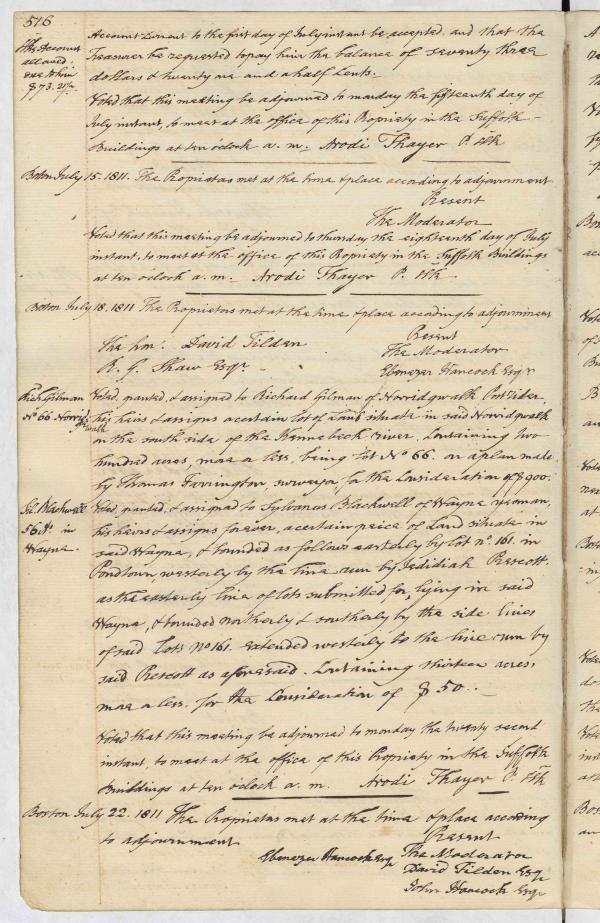 516
Account Current to the first day of July instant be accepted, and that the
His Account
allowed.
due to him
$73.21½.
Treasurer be requested to pay him the balance of seventy three
dollars & twenty one and a half Cents.
Voted that this meeting be adjourned to monday the fifteenth day of
July instant, to meet at the office of this Propriety in the Suffolk
Buildings at ten o'clock a. m. Arodi Thayer P. Clk
Boston July 15. 1811. The Proprietors met at the time & place according to adjournment
Present
The Moderator
Voted that this meeting be adjourned to thursday the eighteenth day of July
instant, to meet at the office of this Propriety in the Suffolk Buildings
at ten o'clock a. m. Arodi Thayer P. Clk
Boston July 18. 1811 The Proprietors met at the time & place according to adjournment
Present
The hon. David Tilden
The Moderator
R. G. Shaw Esqr.
Ebenezer Hancock Esqr
Rich Gilman
No 66 Norridgewalk
Voted, granted, & assigned to Richard Gilman of Norridgwalk
his heirs & assigns a certain lot of Land situate in said Norridgwalk
on the south side of the Kennebeck river, Containing two
hundred acres, more or less, being lot No 66. on a plan made
by Thomas Farrington, surveyor, for the Consideration of $900.
Sil. Blackwell
in
Wayne.
Voted, granted, & assigned to Sylvanus Blackwell of Wayne yeoman,
his heirs & assigns forever, a certain peice of Land situate in
said Wayne, & bounded as follows easterly by lot no. 161. in
Pondtown, westerly by the line run by Jedidiah Prescott.
as the easterly line of lots submitted for, lying in said
Wayne, & bounded northerly & southerly by the side lines
of said Lot No 161. extended westerly to the line run by
said Prescott as aforesaid. Containing thirteen acres,
more or less. for the Consideration of $50..
Voted that this meeting be adjourned to monday the twenty second
instant, to meet at the office of this Propriety in the Suffolk
Buildings at ten o'clock a. m. Arodi Thayer P. Clk
Boston July 22. 1811 The Proprietors met at the time & place according
to adjournment
Present
Ebenezer Hancock Esqr The Moderator
David Tilden Esqr
John Hancock Esqr